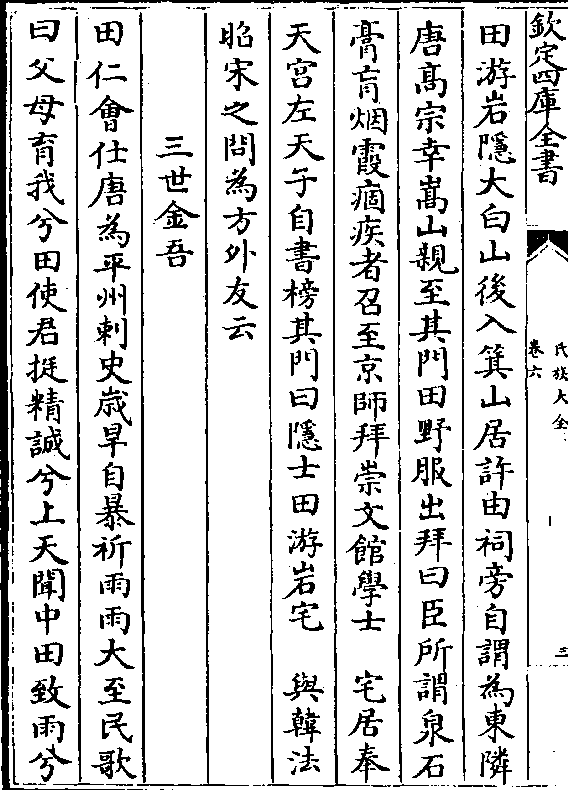 欽定四庫全書
氏族大全
卷六
三
田游岩隱大白山後入箕山居許由祠旁自謂為東隣
唐髙宗幸嵩山親至其門田野服出拜曰臣所謂泉石
膏肓烟霞痼疾者召至京師拜崇文館學士　宅居奉
天宫左天子自書榜其門曰隱士田游岩宅　與韓法
昭宋之問為方外友云
三世金吾
田仁會仕唐為平州刺史歲旱自暴祈雨雨大至民歌
曰父母育我兮田使君挺精誠兮上天聞中田致雨兮